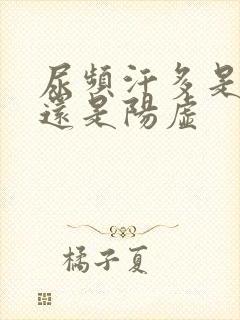 尿頻汗多是
還是陽虛
橘子夏